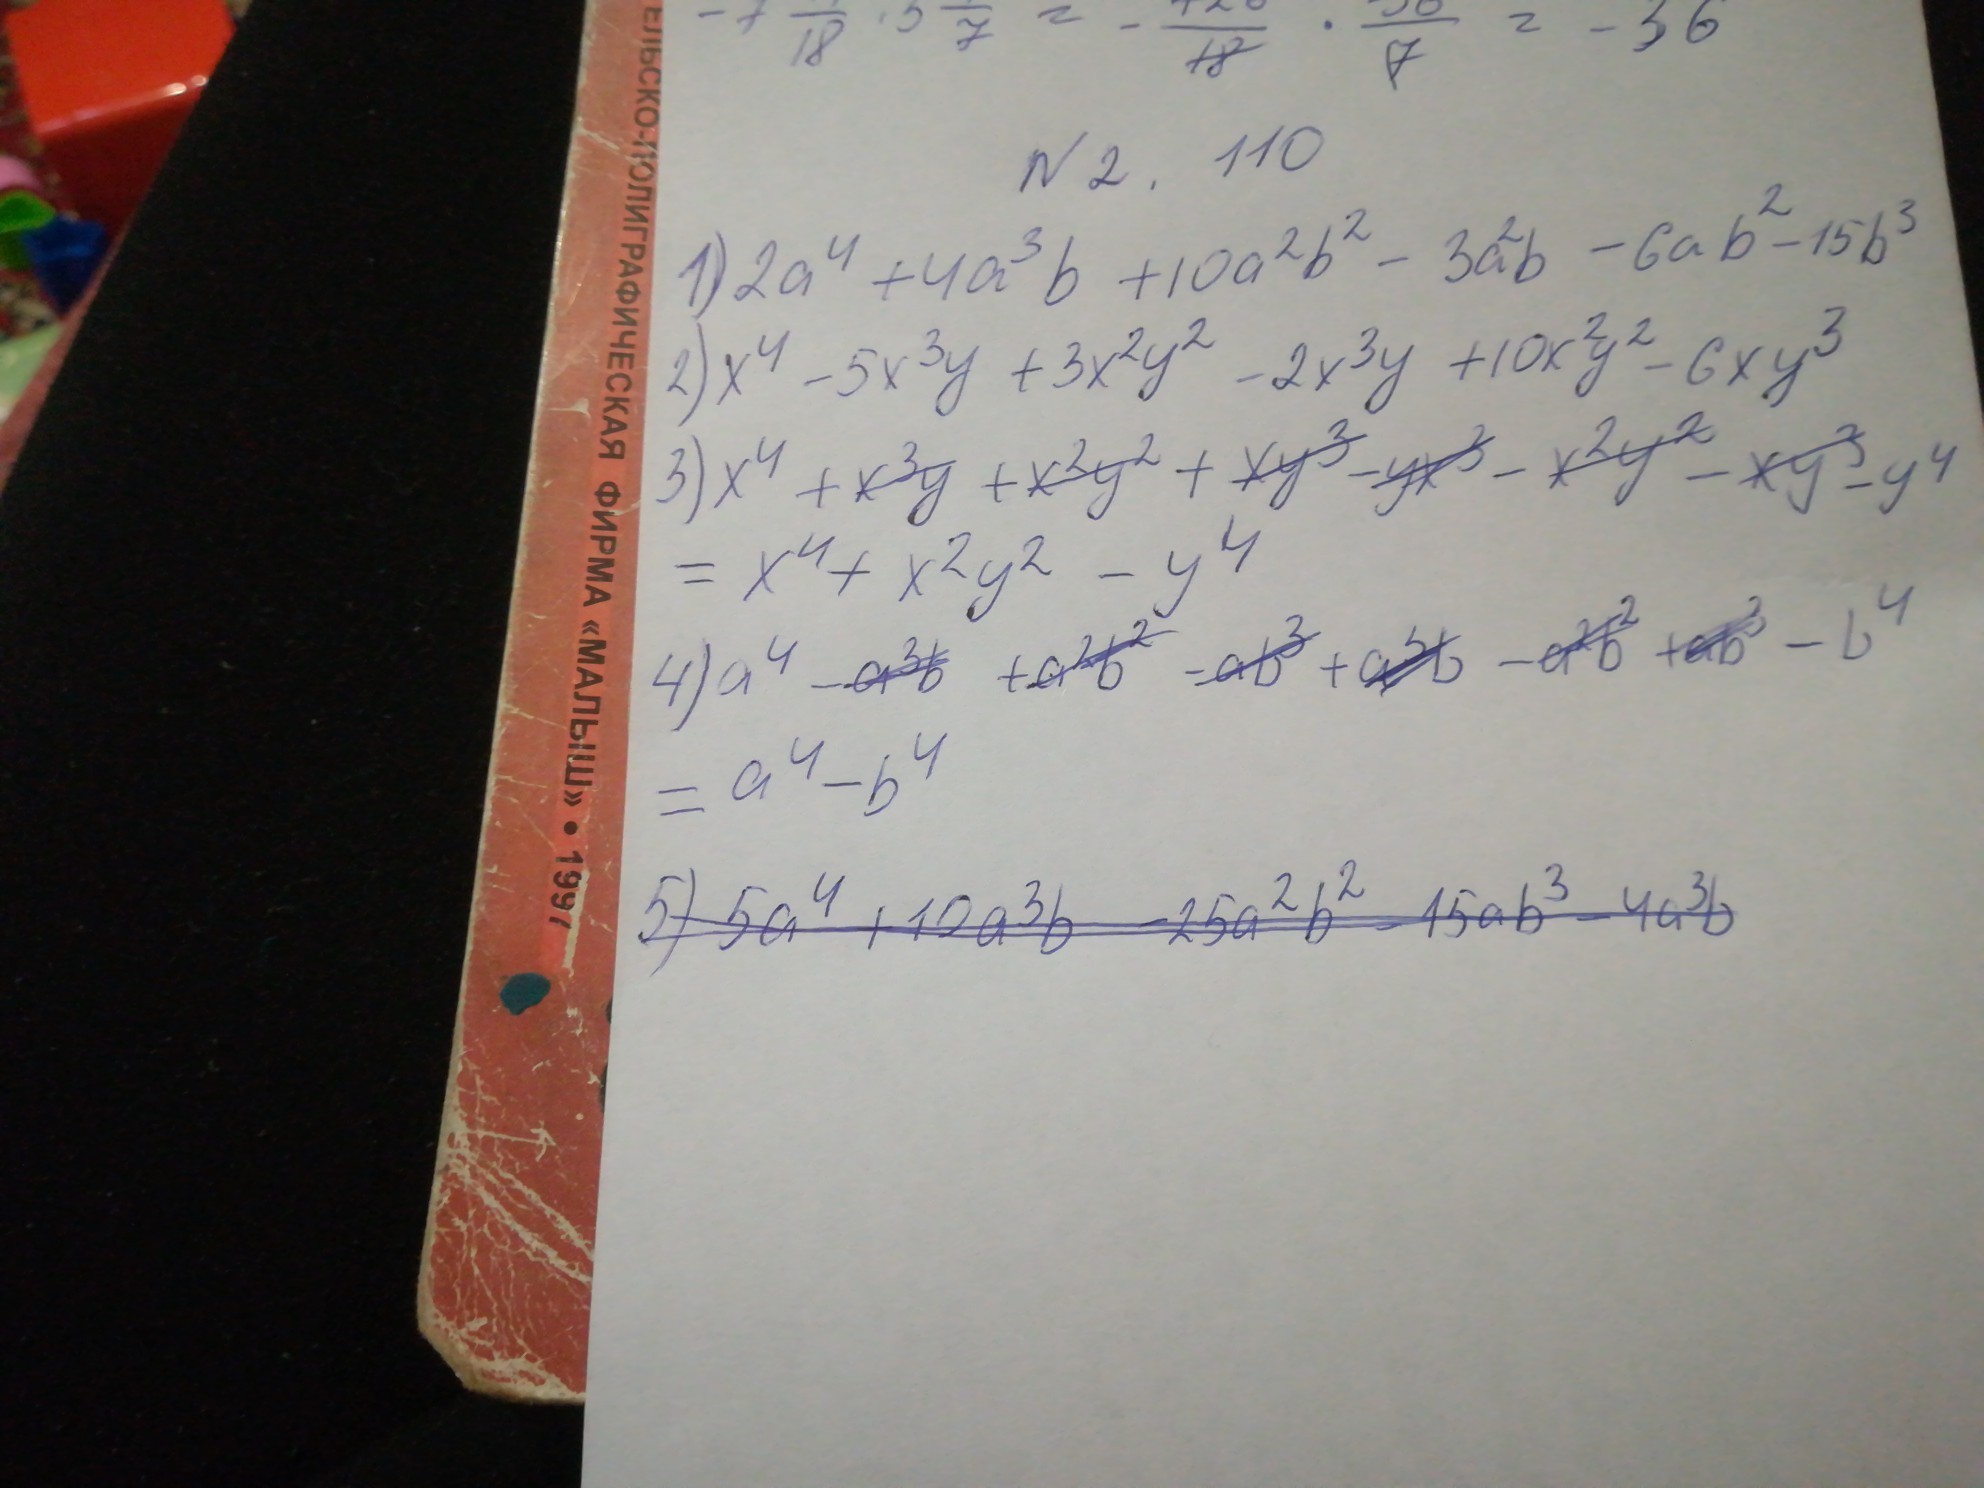 18 7 = - 18 · 7 = - 36
N 2. 110
1) 2a⁴ + 4a³b + 10a²b² - 3a²b - 6ab² - 15b³
2) x⁴ - 5x³y + 3x²y² - 2x³y + 10x²y² - 6xy³
3) x⁴ + x³y + x²y² + xy³ - yx³ - x²y² - xy³ - y⁴
= x⁴ + x²y² - y⁴
4) a⁴ - a³b + a²b² - ab³ + a³b - a²b² + ab³ - b⁴
= a⁴ - b⁴
5) 5a⁴ + 10a³b - 25a²b² - 15ab³ - 4a³b
ЕЛЬСКО-ПОЛИГРАФИЧЕСКАЯ ФИРМА «МАЛЫШ» • 1997